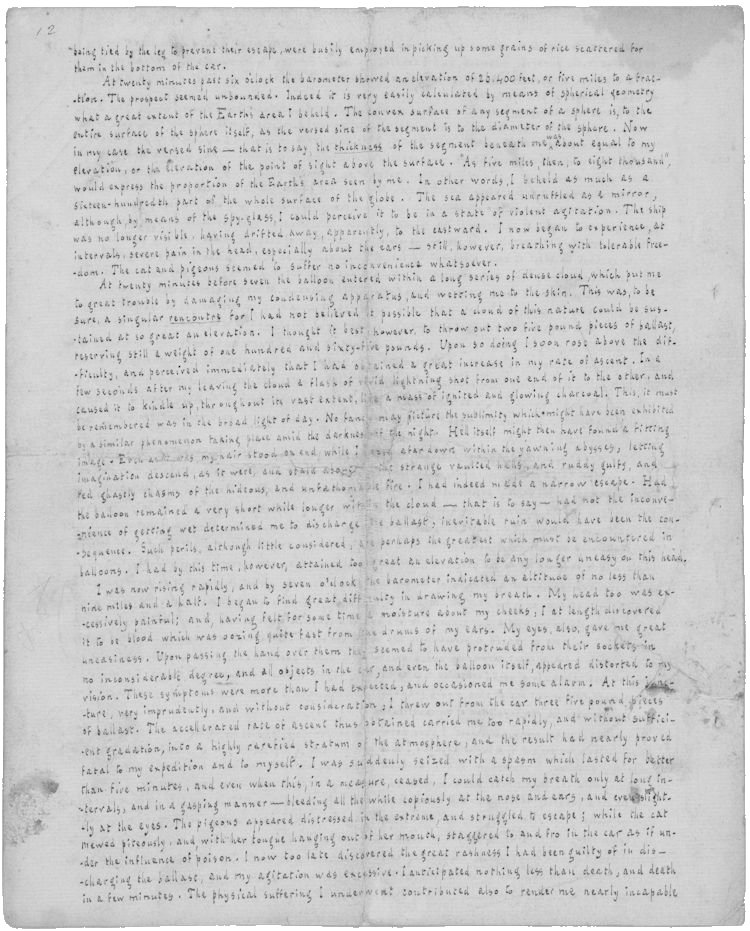 12
being tied by the leg to prevent their escape, were busily employed in picking up some grains of rice scattered for
them in the bottom of the car.
At twenty minutes past six o'clock the barometer showed an elevation of 26,400 feet, or five miles to a frac-
-tion. The prospect seemed unbounded. Indeed it is very easily calculated by means of spherical geometry
what a great extent of the Earth's area I beheld. The convex surface of any segment of a sphere is, to the
entire surface of the sphere itself, as the versed sine of the segment is to the diameter of the sphere. Now
in my case the versed sine — that is to say, the thickness of the segment beneath me, was about equal to my
elevation, or the elevation of the point of sight above the surface. "As five miles, then, to eight thousand",
would express the proportion of the Earth's area seen by me. In other words, I beheld as much as a
sixteen-hundredth part of the whole surface of the globe. The sea appeared unruffled as a mirror,
although, by means of the spy-glass, I could perceive it to be in a state of violent agitation. The ship
was no longer visible, having drifted away, apparently, to the eastward. I now began to experience, at
intervals, severe pain in the head, especially about the ears — still, however, breathing with tolerable free-
-dom. The cat and pigeons seemed to suffer no inconvenience whatsoever.
At twenty minutes before seven the balloon entered within a long series of dense cloud, which put me
to great trouble by damaging my condensing apparatus, and wetting me to the skin. This was, to be
sure, a singular rencontre for I had not believed it possible that a cloud of this nature could be sus-
-tained at so great an elevation. I thought it best, however, to throw out two five pound pieces of ballast,
reserving still a weight of one hundred and sixty-five pounds. Upon so doing I soon rose above the dif-
-ficulty, and perceived immediately that I had obtained a great increase in my rate of ascent. In a
few seconds after my leaving the cloud a flash of vivid lightning shot from one end of it to the other, and
caused it to kindle up, throughout its vast extent, like a mass of ignited and glowing charcoal. This, it must
be remembered was in the broad light of day. No fancy may picture the sublimity which might have been exhibited
by a similar phenomenon taking place amid the darkness of the night. Hell itself might then have found a fitting
image. Even as it was my hair stood on end while I gazed afar down within the yawning abysses, letting
imagination descend, as it were, and stalk about in the strange vaulted halls, and ruddy gulfs, and
red ghastly chasms of the hideous, and unfathomable fire. I had indeed made a narrow escape. Had
the balloon remained a very short while longer within the cloud — that is to say — had not the inconve-
-nience of getting wet determined me to discharge the ballast, inevitable ruin would have been the con-
-sequence. Such perils, although little considered, are perhaps the greatest which must be encountered in
balloons. I had by this time, however, attained too great an elevation to be any longer uneasy on this head.
I was now rising rapidly, and by seven o'clock the barometer indicated an altitude of no less than
nine miles and a half. I began to find great difficulty in drawing my breath. My head too was ex-
-cessively painful; and, having felt for some time a moisture about my cheeks, I at length discovered
it to be blood which was oozing quite fast from the drums of my ears. My eyes, also, gave me great
uneasiness. Upon passing the hand over them they seemed to have protruded from their sockets in
no inconsiderable degree, and all objects in the car, and even the balloon itself, appeared distorted to my
vision. These symptoms were more than I had expected, and occasioned me some alarm. At this junc-
-ture, very imprudently, and without consideration, I threw out from the car three five pound pieces
of ballast. The accellerated rate of ascent thus obtained carried me too rapidly, and without suffici-
-ent gradation, into a highly rarefied stratum of the atmosphere, and the result had nearly proved
fatal to my expedition and to myself. I was suddenly seized with a spasm which lasted for better
than five minutes, and even when this, in a measure, ceased, I could catch my breath only at long in-
-tervals, and in a gasping manner — bleeding all the while copiously at the nose and ears, and even slight-
-ly at the eyes. The pigeons appeared distressed in the extreme, and struggled to escape; while the cat
mewed piteously, and with her tongue hanging out of her mouth, staggered to and fro in the car as if un-
-der the influence of poison. I now too late discovered the great rashness I had been guilty of in dis-
-charging the ballast, and my agitation was excessive. I anticipated nothing less than death, and death
in a few minutes. The physical suffering I underwent contributed also to render me nearly incapable